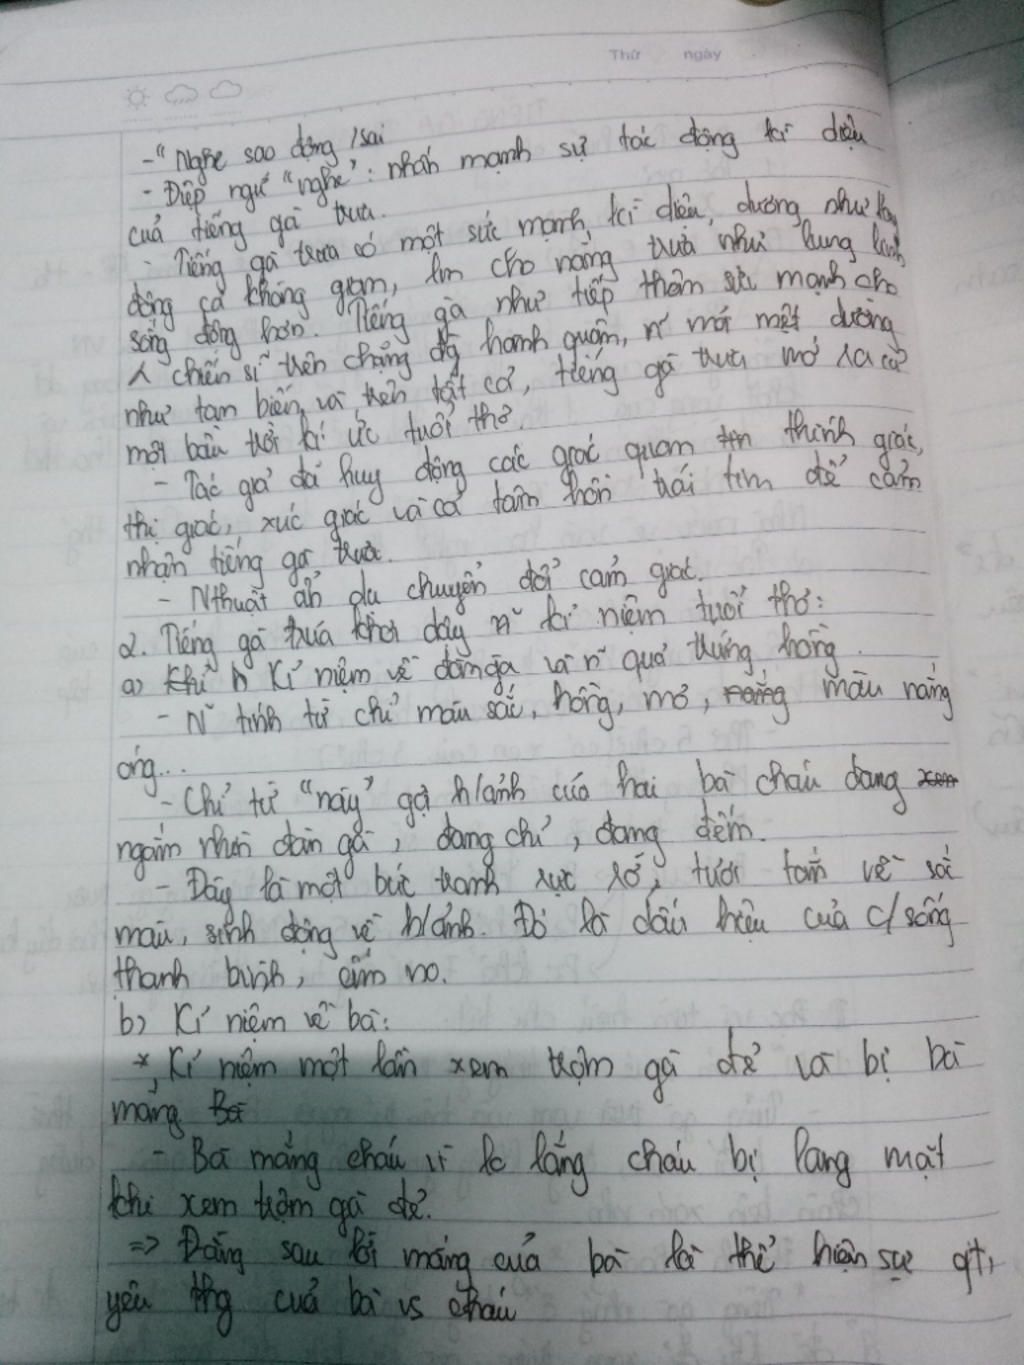 Thứ ngày
- "Nghe sao động /sai
- Điệp ngữ "nghe": nhấn mạnh sự tác động kì diệu
của tiếng gà trưa.
- Tiếng gà trưa có một sức mạnh kì diệu, dường như lay
động cả không gian, làm cho nắng trưa như lung linh
sống động hơn. Tiếng gà như tiếp thêm sức mạnh cho
chiến sĩ trên chặng đg hành quân, mới mệt dường
như tan biến, và trên tất cả, tiếng gà trưa mở ra cả
một bầu trời kí ức tuổi thơ.
- Tác giả đã huy động các giác quan thính giác,
thị giác, xúc giác và cả tâm hồn trái tim để cảm
nhận tiếng gà trưa.
- Nthuật ẩn dụ chuyển đổi cảm giác.
2. Tiếng gà trưa khơi dậy n~ kỉ niệm tuổi thơ:
a) Kỉ niệm về đàn gà và n~ quả trứng hồng.
- N~ tính từ chỉ màu sắc, hồng, mơ, màu nắng
óng...
- Chỉ từ "này" gợi h/ảnh của hai bà cháu đang
ngắm nhìn đàn gà, đang chỉ, đang đếm.
- Đây là một bức tranh rực rỡ, tươi tắn về sắc
màu, sinh động về h/ảnh. Đó là dấu hiệu của c/sống
thanh bình, ấm no.
b) Kỉ niệm về bà:
*, Kỉ niệm một lần xem trộm gà đẻ và bị bà
mắng
- Bà mắng cháu vì lo lắng cháu bị lang mặt
khi xem trộm gà đẻ.
=> Đằng sau lời mắng của bà là thể hiện sự qt,
yêu thg của bà vs cháu